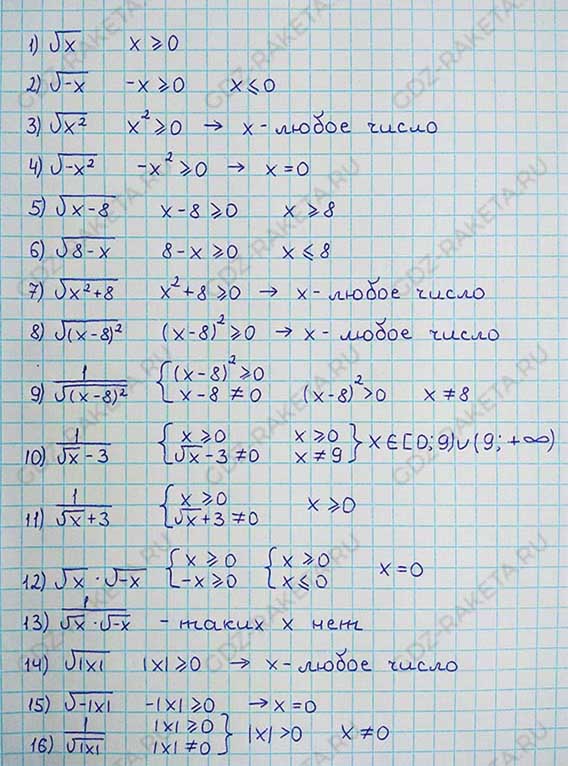 1) √x x ≥ 0
2) √-x -x ≥ 0 x ≤ 0
3) √x² x² ≥ 0 → x - любое число
4) √-x² -x² ≥ 0 → x = 0
5) √x-8 x-8 ≥ 0 x ≥ 8
6) √8-x 8-x ≥ 0 x ≤ 8
7) √x²+8 x²+8 ≥ 0 → x - любое число
8) √(x-8)² (x-8)² ≥ 0 → x - любое число
9) 1/√(x-8)² { (x-8)² ≥ 0 x-8 ≠ 0 (x-8)² > 0 x ≠ 8
10) 1/√x-3 { x ≥ 0 √x-3 ≠ 0 x ≥ 0 x ≠ 9 } x ∈ [0; 9) ∪ (9; +∞)
11) 1/√x+3 { x ≥ 0 √x+3 ≠ 0 x ≥ 0
12) √x · √-x { x ≥ 0 -x ≥ 0 { x ≥ 0 x ≤ 0 x = 0
13) 1/√x · √-x - таких x нет
14) √|x| |x| ≥ 0 → x - любое число
15) √-|x| -|x| ≥ 0 → x = 0
16) 1/√|x| |x| ≥ 0 |x| ≠ 0 } |x| > 0 x ≠ 0
GDZ-RAKETA.RU